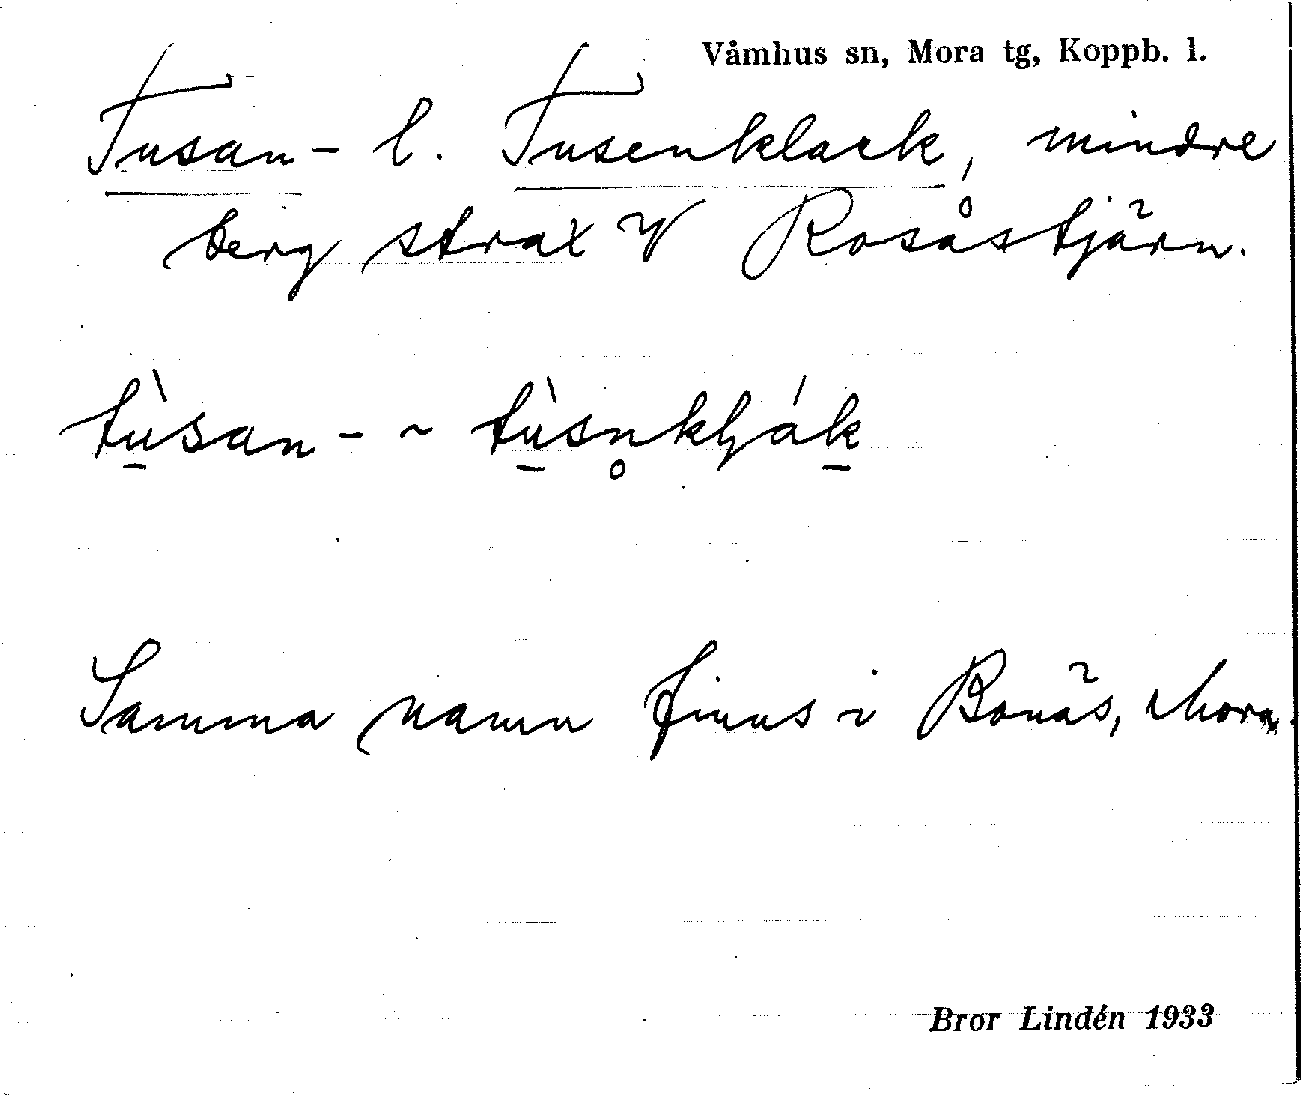 Våmhus sn, Mora tg, Koppb. l.
Tusan- l. Tusenklack, mindre
berg strax V Rosåstjärn.
tu̠̇̀san- ~ tu̠̇̀sn̥klják̠
Samma namn finns i Bonäs, Mora.
Bror Lindén 1933